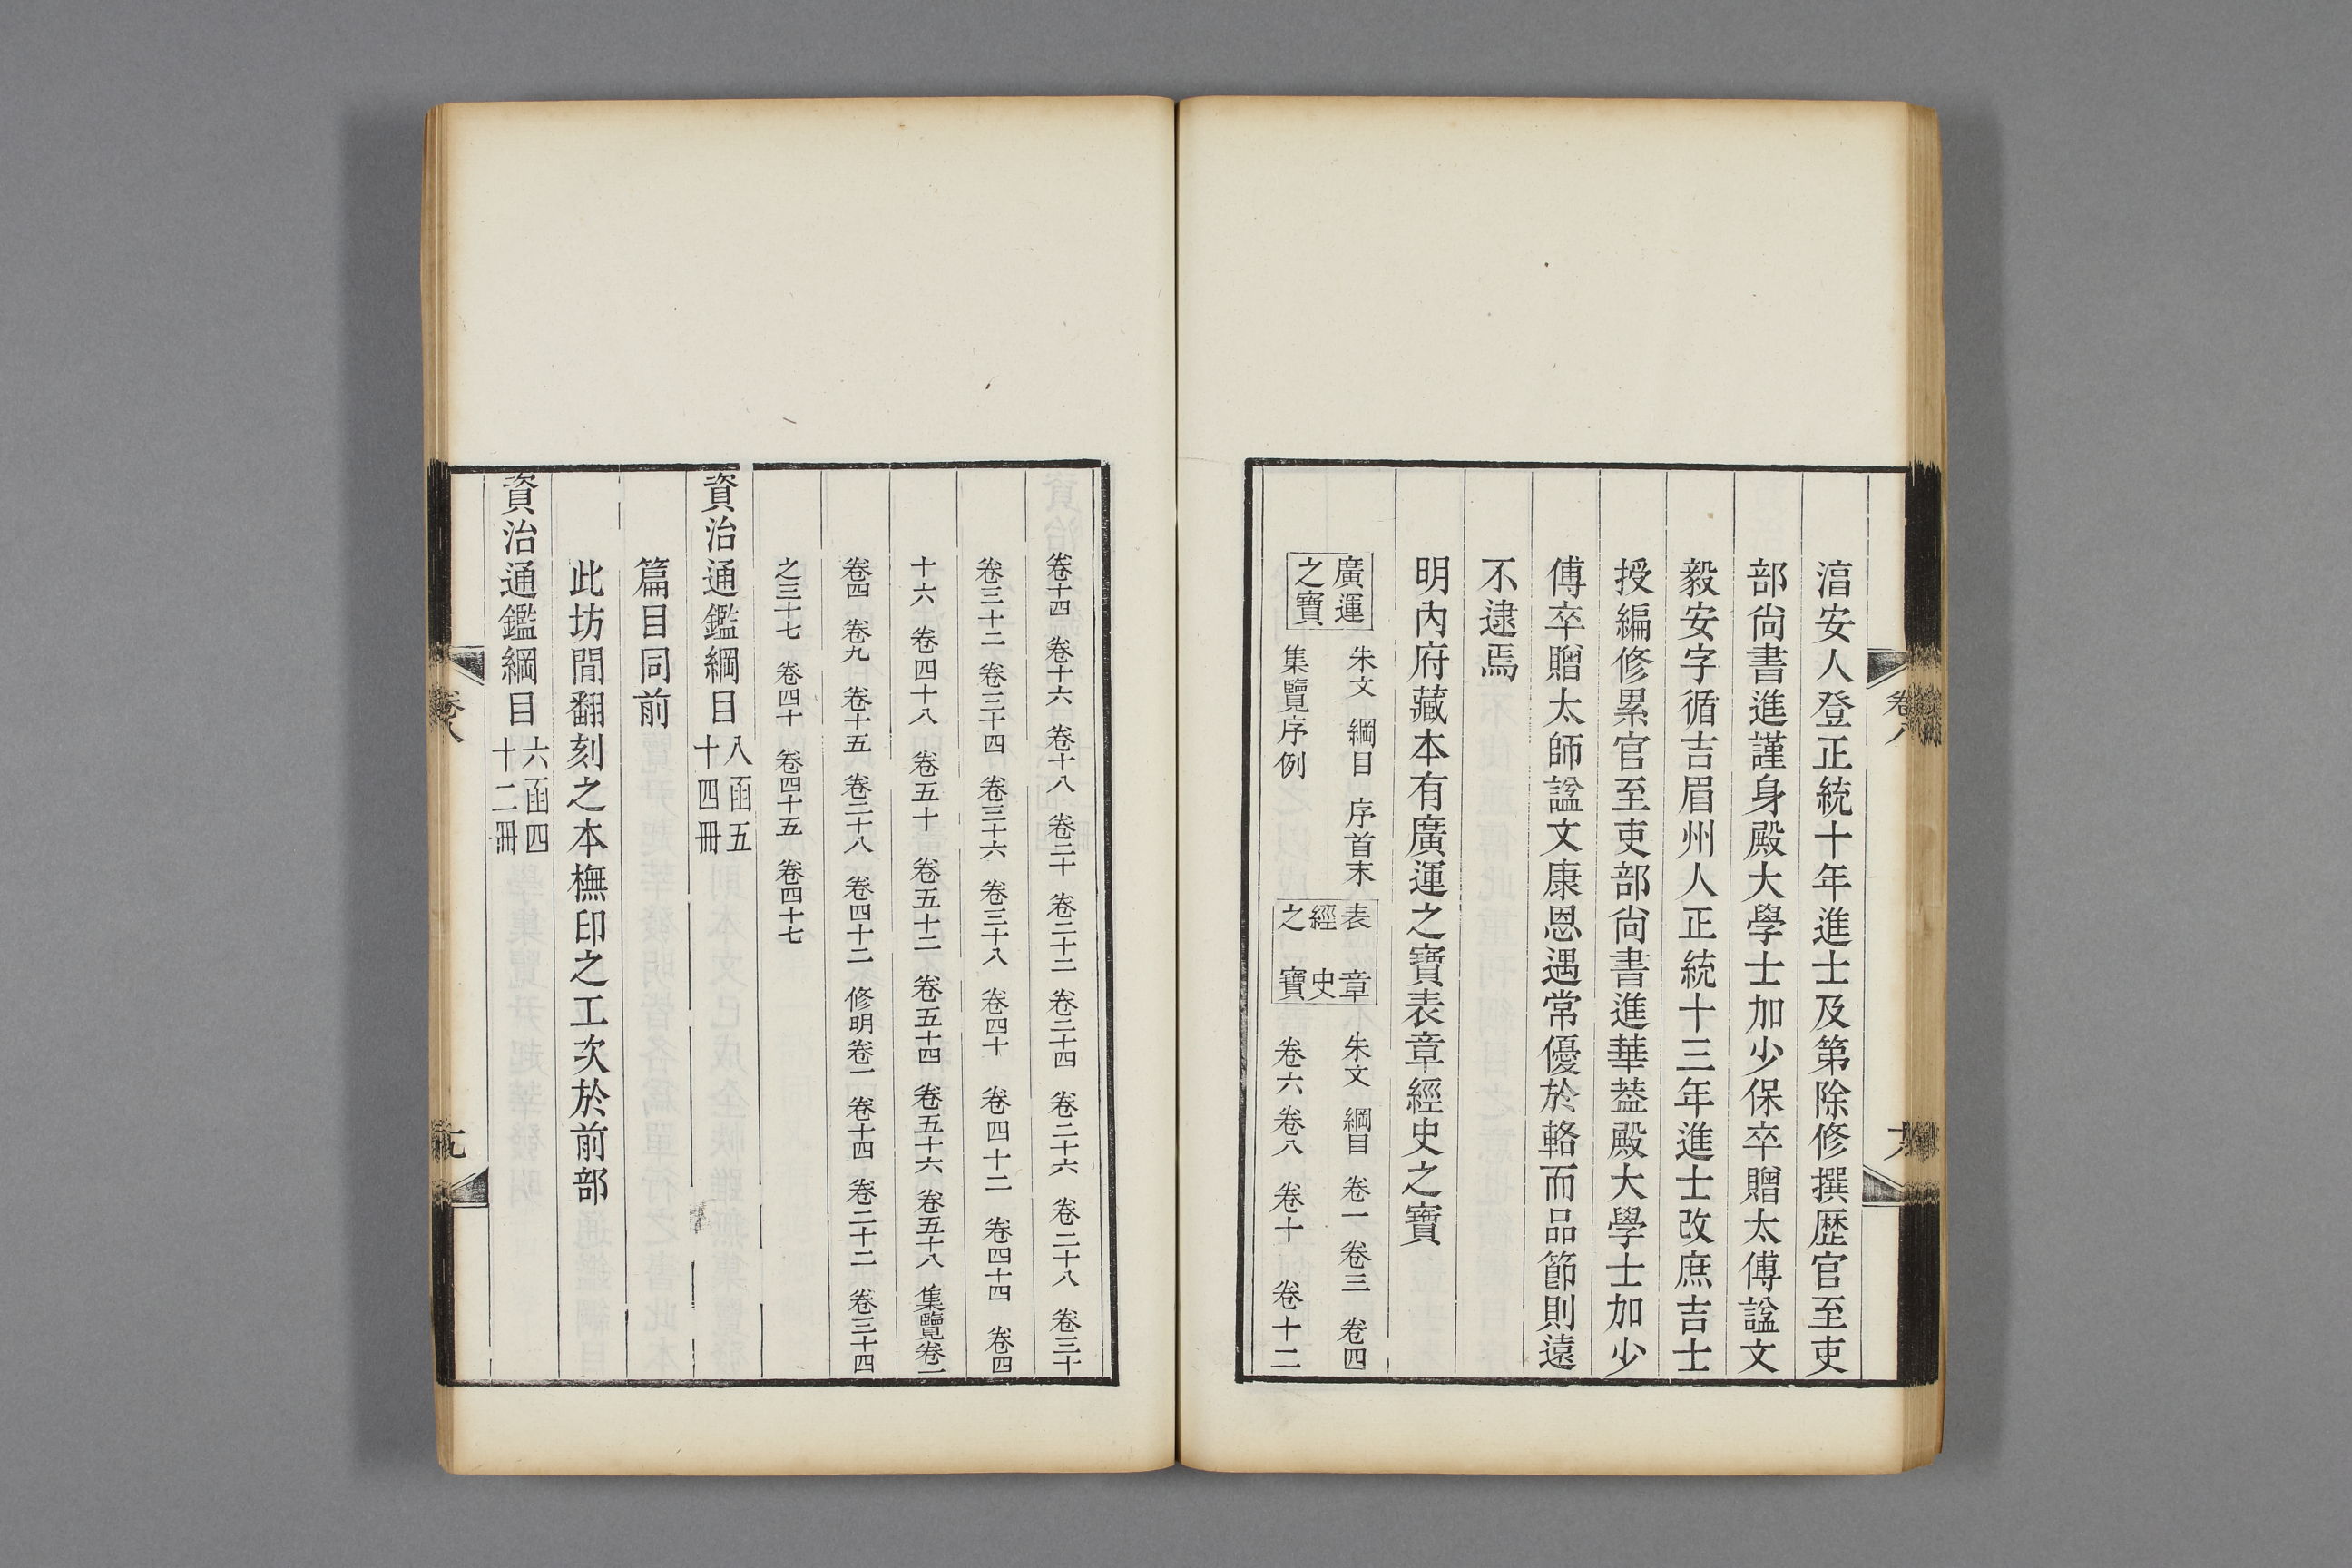 淯安人登正統十年進士及第除修撰歷官至吏
部尚書進謹身殿大學士加少保卒贈太傅諡文
毅安字循吉眉州人正統十三年進士改庶吉士
授編修累官至吏部尚書進華葢殿大學士加少
傅卒贈太師諡文康恩遇常優於輅而品節則遠
不逮焉
明內府藏本有廣運之寶表章經史之寶
廣運之寶
朱文 綱目 序首末
集覽序例
表章經史之寶
朱文 綱目 卷一 卷三 卷四
卷六 卷八 卷十 卷十二
卷八
卷十四 卷十六 卷十八 卷二十 卷二十二 卷二十四 卷二十六 卷二十八 卷三十
卷三十二 卷三十四 卷三十六 卷三十八 卷四十 卷四十二 卷四十四 卷四
十六 卷四十八 卷五十 卷五十二 卷五十四 卷五十六 卷五十八 集覽卷一
卷四 卷九 卷十五 卷二十八 卷四十二 修明卷一 卷十四 卷二十二 卷三十四
之三十七 卷四十 卷四十五 卷四十七
資治通鑑綱目 八函五十四冊
篇目同前
此坊閒翻刻之本橅印之工次於前部
資治通鑑綱目 六函四十二冊
卷八